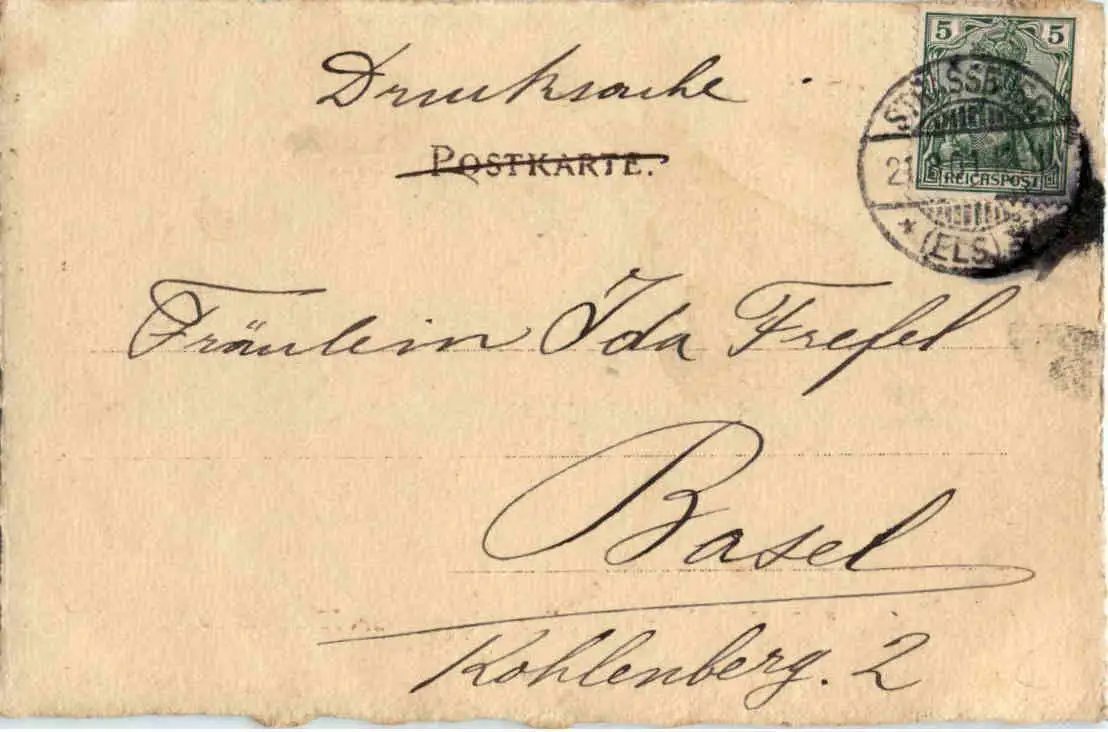 5 5
REICHSPOST
STRASSBURG
21.
* (ELS)
Drucksache
POSTKARTE.
Fräulein Ida Frefel
Basel
Kohlenberg. 2